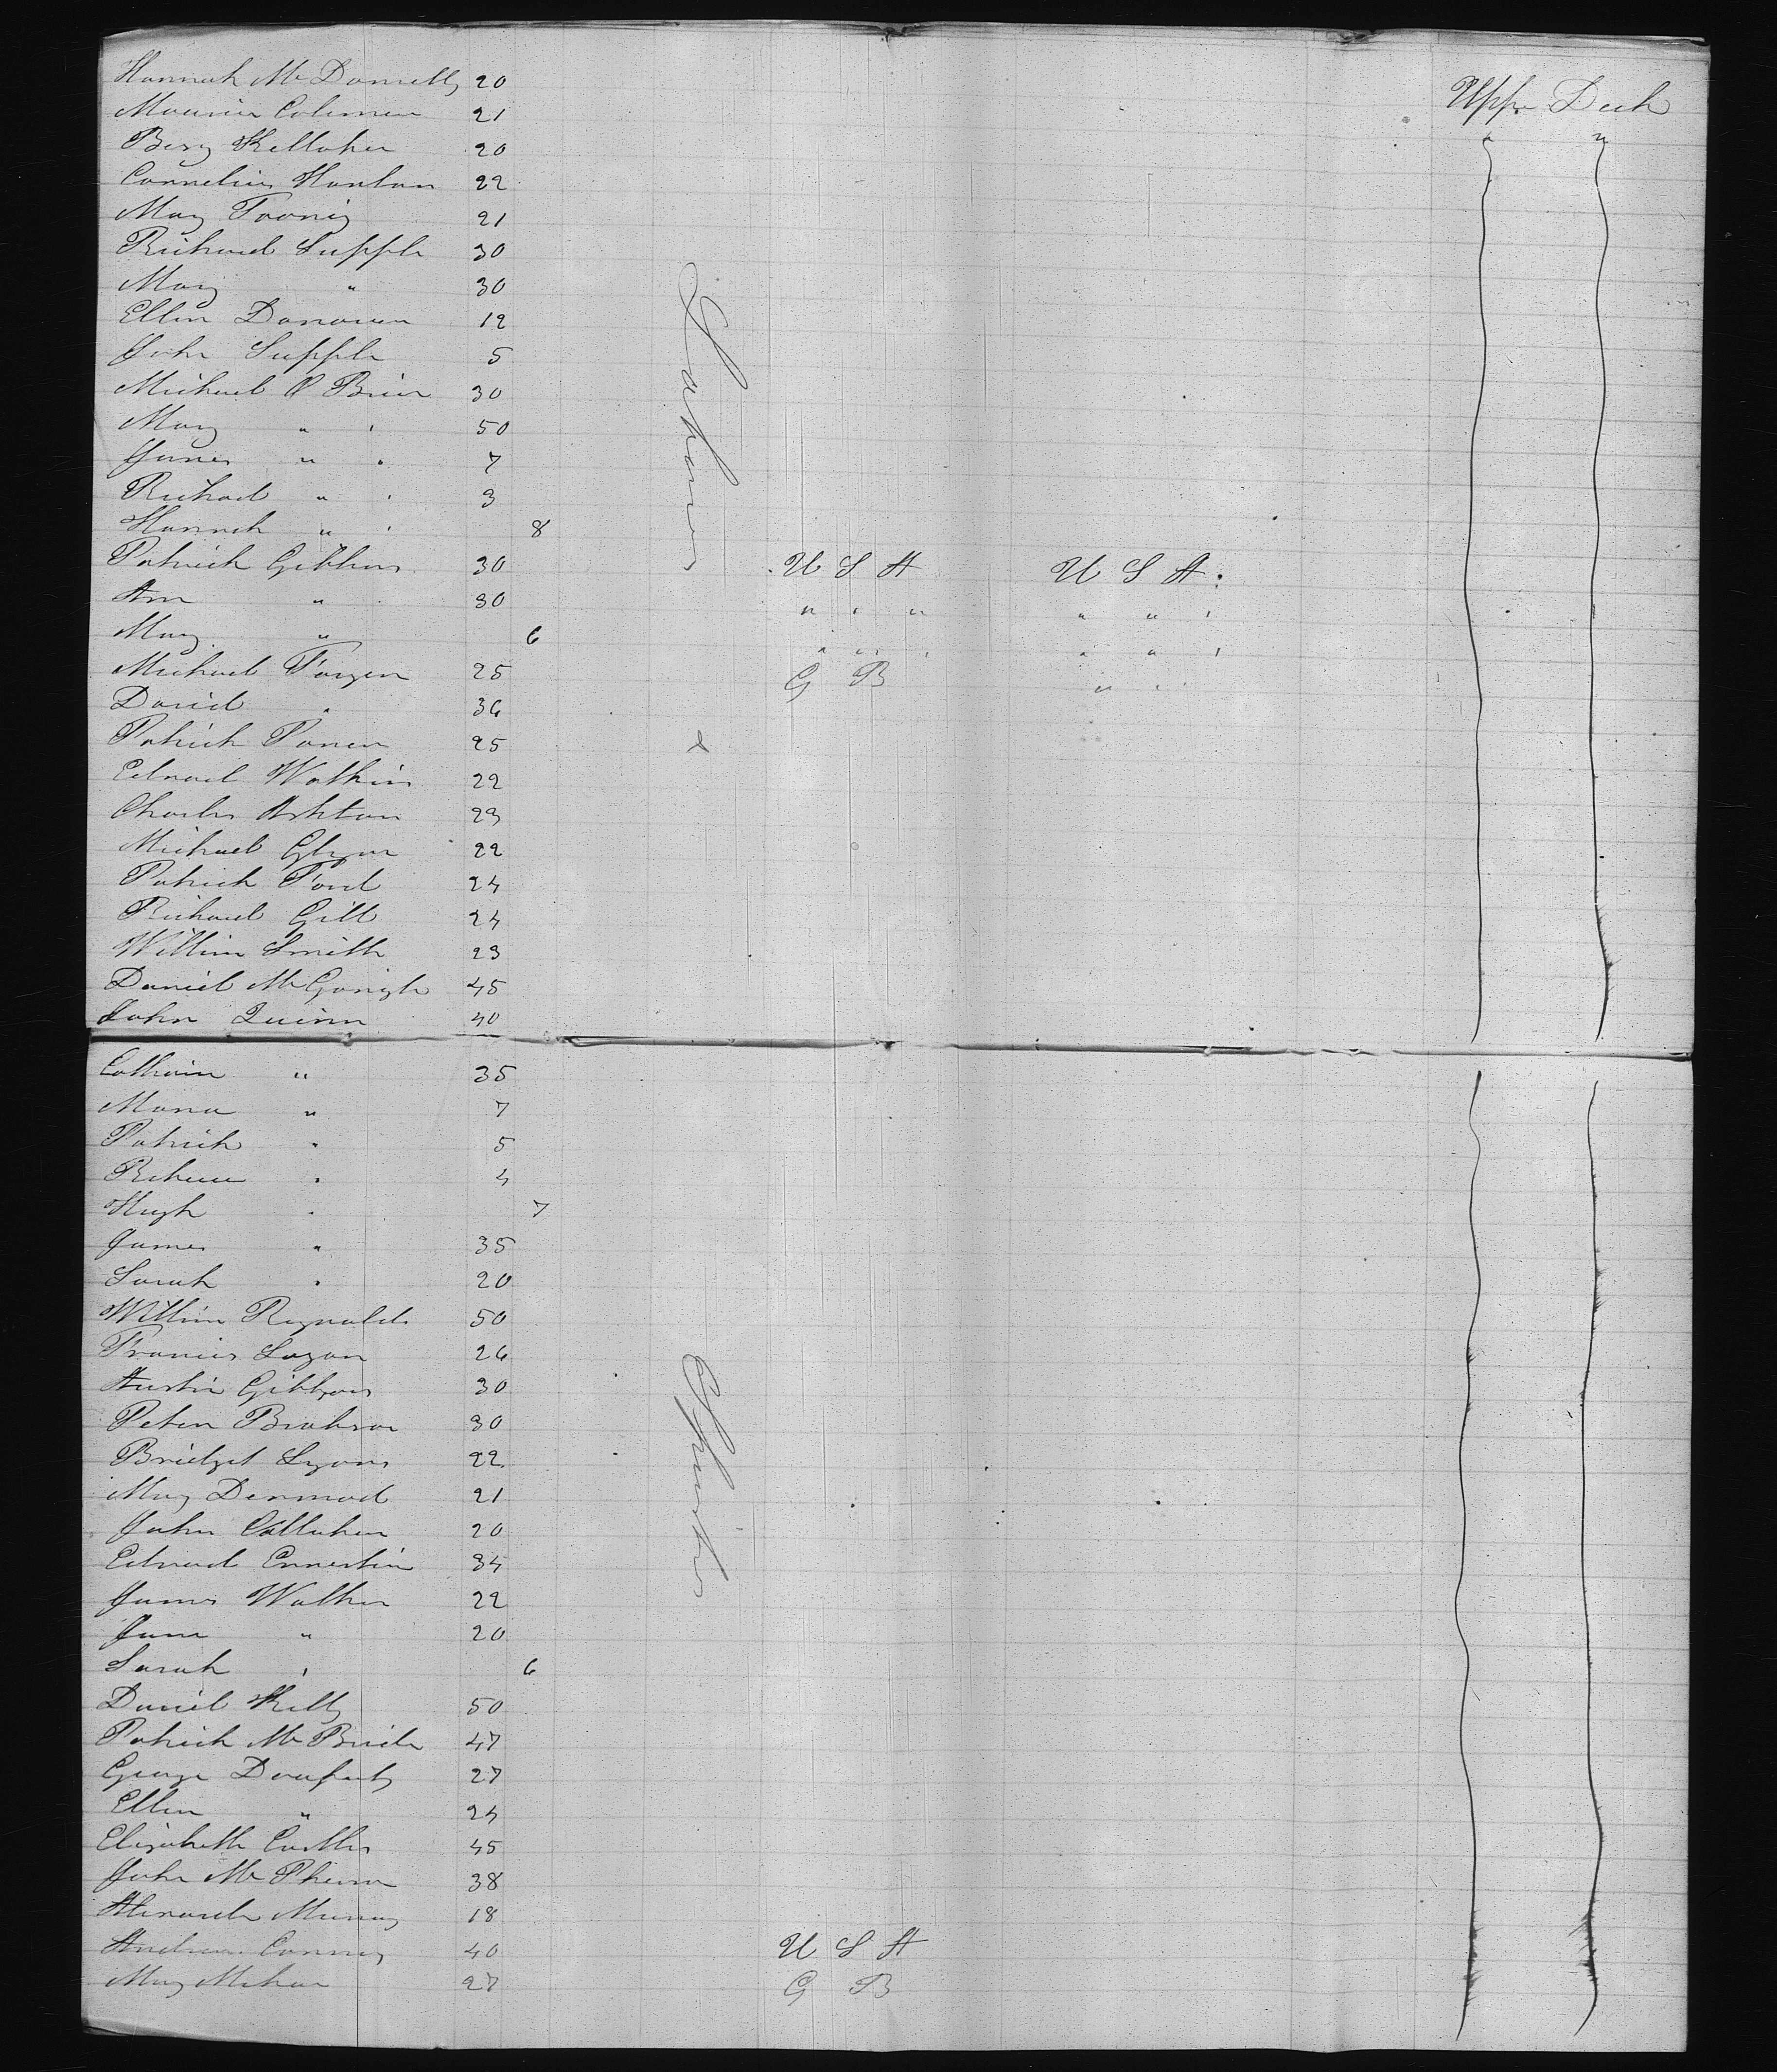 Hannah McDonnelly 20 Uppr Deck
Maurice Coleman 21 " "
Besy Kellaher 20
Cornelius Hanlan 22
Mary Tooniy 21
Richard Supple 30
Mary " 30
Ellen Donovan 12
John Supple 5
Michael O Brien 30
Mary " " 50
James " " 7
Richard " " 3
Hannah " " 8
Laborers
Patrick Gibbons 30 U S A U S A
Ann " 30 " " " " " "
Mary " 6 " " " " " "
Michael 25 G B " "
David " 36
&
Patrick 25
Edward Watkins 22
Charles Ashton 23
Michael Glynn 22
Patrick Ford 24
Richard Gill 24
William Smith 23
Daniel McGonigle 45
John Quinn 40
Catharin " 35
Maria " 7
Patrick " 5
Rebecca " 4
Hugh " 7
James " 35
Sarah " 20
William Reynolds 50
Francis Logan 26
Austin Gibbons 30
Peter 30
Bridget Lyons 22
Mary Dermod 21
John Callahan 20
Edward 34
James Walker 22
Jane " 20
Sarah " 6
Spinsters
Daniel Kelly 50
Patrick McBride 47
George 27
Ellen " 24
Elizabeth 45
John 38
Alexander Murray 18
Andrew 40 U S A
Mary 27 G B